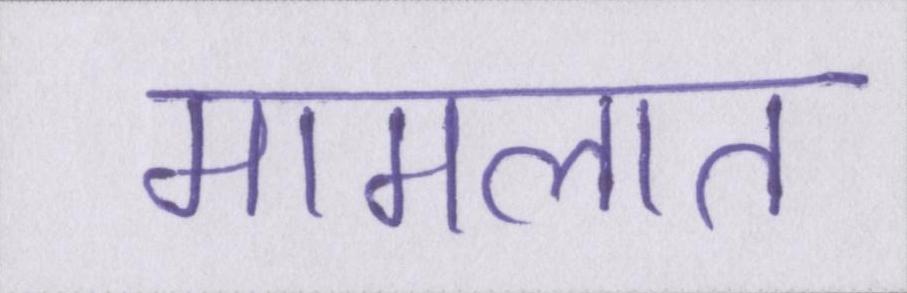 मामलात